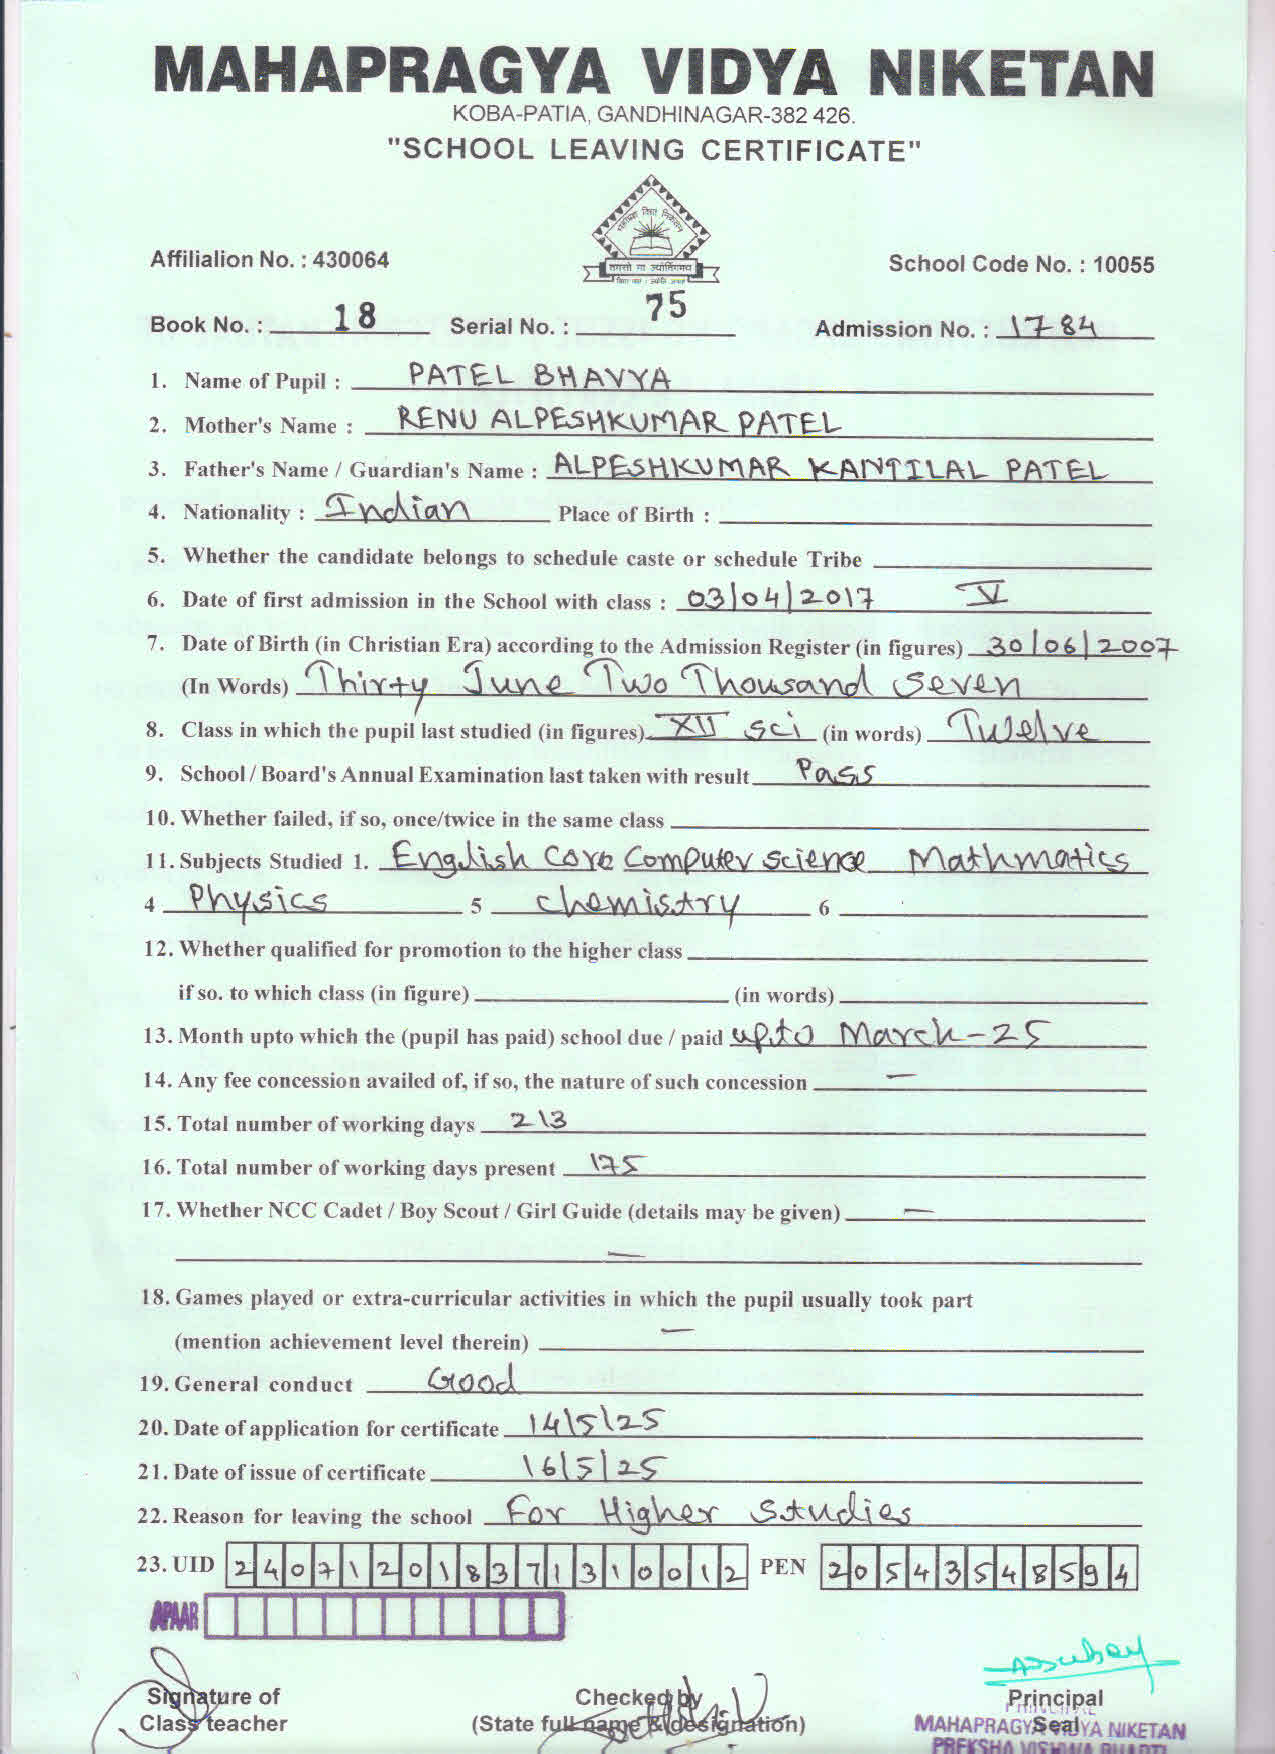 MAHAPRAGYA VIDYA NIKETAN
KOBA-PATIA, GANDHINAGAR-382 426.
"SCHOOL LEAVING CERTIFICATE"
महाप्रज्ञ विद्या निकेतन
तमसो मा ज्योतिर्गमय
Affilialion No. : 430064
School Code No. : 10055
Book No. : 18 Serial No. : 75 Admission No. : 1784
1. Name of Pupil : PATEL BHAVYA
2. Mother's Name : RENU ALPESHKUMAR PATEL
3. Father's Name / Guardian's Name : ALPESHKUMAR KANTILAL PATEL
4. Nationality : Indian Place of Birth :
5. Whether the candidate belongs to schedule caste or schedule Tribe
6. Date of first admission in the School with class : 03/04/2017 V
7. Date of Birth (in Christian Era) according to the Admission Register (in figures) 30/06/2007
(In Words) Thirty June Two Thousand Seven
8. Class in which the pupil last studied (in figures) XII sci (in words) Twelve
9. School / Board's Annual Examination last taken with result Pass
10. Whether failed, if so, once/twice in the same class
11. Subjects Studied 1. English Core Computer science Mathmatics
4 Physics 5 chemistry 6
12. Whether qualified for promotion to the higher class
if so. to which class (in figure) (in words)
13. Month upto which the (pupil has paid) school due / paid upto March-25
14. Any fee concession availed of, if so, the nature of such concession —
15. Total number of working days 213
16. Total number of working days present 175
17. Whether NCC Cadet / Boy Scout / Girl Guide (details may be given) —
—
18. Games played or extra-curricular activities in which the pupil usually took part
(mention achievement level therein) —
19. General conduct Good
20. Date of application for certificate 14/5/25
21. Date of issue of certificate 16/5/25
22. Reason for leaving the school For Higher Studies
23. UID 240712018371310012 PEN 20543548594
APAAR
Signature of Checked by Principal
Class teacher (State full name & designation) Seal
PRINCIPAL
MAHAPRAGYA VIDYA NIKETAN
PREKSHA VISHWA BHARTI